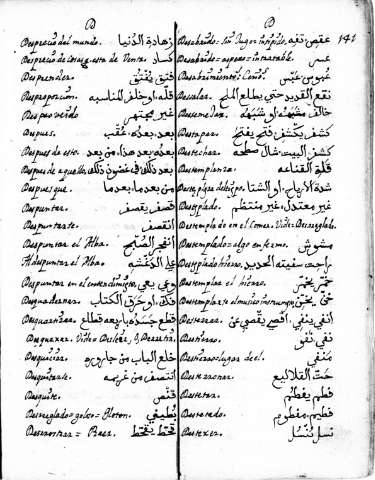 D
Desprecio del mundo. زهادة الدنيا
Desprecio de cosas q̃ esta de Venta. كساد
Desprender. فتق يفتق
Desproporcion. قلة او خلف المناسبه
Desproveido غير مجتهز
Despues. بعد بعده عقب
Despues de esto. بعده بعد هذا من بعد
Despues de aquello. بعد ذلك في غضون ذلك
Despues que. من بعد ما بعدما
Despuntar. قصف يقصف
Despuntarse. انقصف
Despuntar el Alba. انفجر الصبح
Al despuntar el Alba.
Despuntar en el entendimiento. وعي يعي
Desquadernar. فك او خرق الكتاب
Desquartizar. قطع جسده باربعه قطاع
Desquiciar. خلع الباب من
Desquitarse. انتصف من غريمه
Desquite. قنص
Desreglado = goloso = Gloton.
Desrostrar = Raer. قحط يقحط
D
141
Desabrido = sin Jugo = insipido. عفص تفه
Desabrido = aspero = intratable. عسر
Desabrimiento. عبوس عبس
Desalar. نقع القديد حتي يطلع الملح
Desemejar. خالف مشبهه او شبهه
Destapar. كشف يكشف فتح يفتح
Destechar. كشف البيت شال سطحه
Destemplanza. قلة القناعه
Destemplanza del tiempo. شدة الارياح او الشتا
Destemplado. غير معتدل غير منتظم
Destemplado en el Comer. Vide = Desreglado.
Destemplado = algo enfermo. مشوش
Destemplado hierro. راحت سقيته الحديد
Destemplar el hierro.
Destemplarse el musico instrumento.
Desterrar. انفي ينفي اقصي يقصي عن
Destierro. نفي
Destierro = lugar de el. منفي
Desterronar. حت القلاليع
Destetar. فطم يفطم
Destetado. فطيم مفطوم
Destexer. نسل ننسل